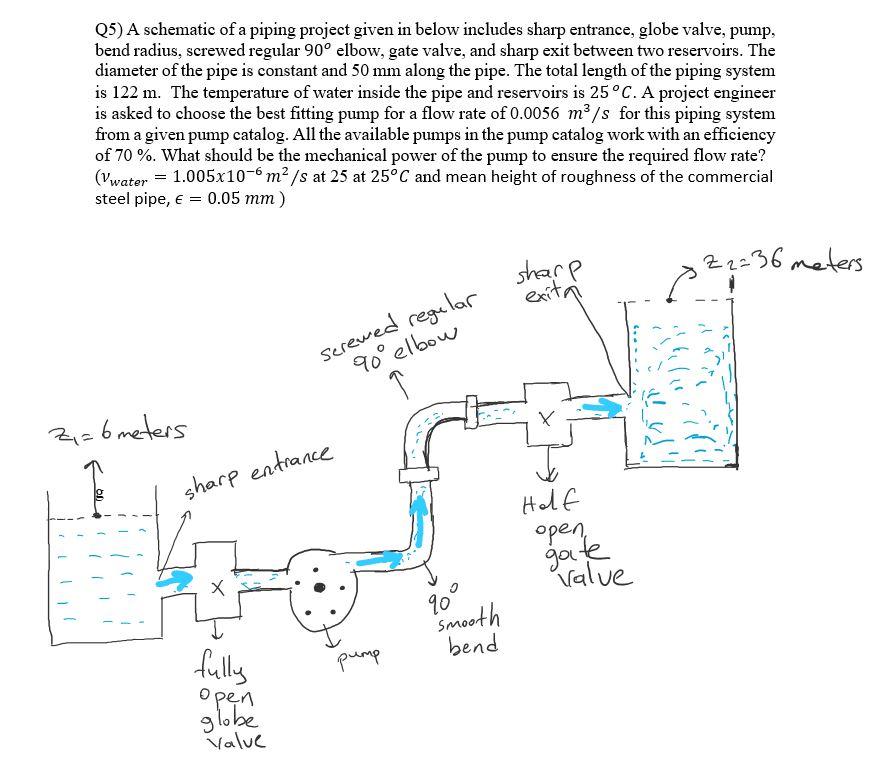 Q5) A schematic of a piping project given in below includes sharp entrance, globe valve, pump,
bend radius, screwed regular 90° elbow, gate valve, and sharp exit between two reservoirs. The
diameter of the pipe is constant and 50 mm along the pipe. The total length of the piping system
is 122 m. The temperature of water inside the pipe and reservoirs is 25 °C. A project engineer
is asked to choose the best fitting pump for a flow rate of 0.0056 m³/s for this piping system
from a given pump catalog. All the available pumps in the pump catalog work with an efficiency
of 70 %. What should be the mechanical power of the pump to ensure the required flow rate?
(ν_water = 1.005x10⁻⁶ m²/s at 25 at 25°C and mean height of roughness of the commercial
steel pipe, ϵ = 0.05 mm )
z₂=36 meters
sharp
exit
screwed regular
90° elbow
z₁=6 meters
sharp entrance
g
X
X
Half
open
gate
valve
90°
smooth
bend
pump
fully
open
globe
valve